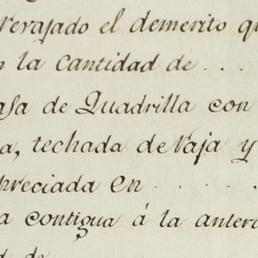 rerajado el demerito qu
n la Cantidad de . . .
asa de Quadrilla con
a, techada de Vaja y
preciada en . . . . .
a contigua á la anteri